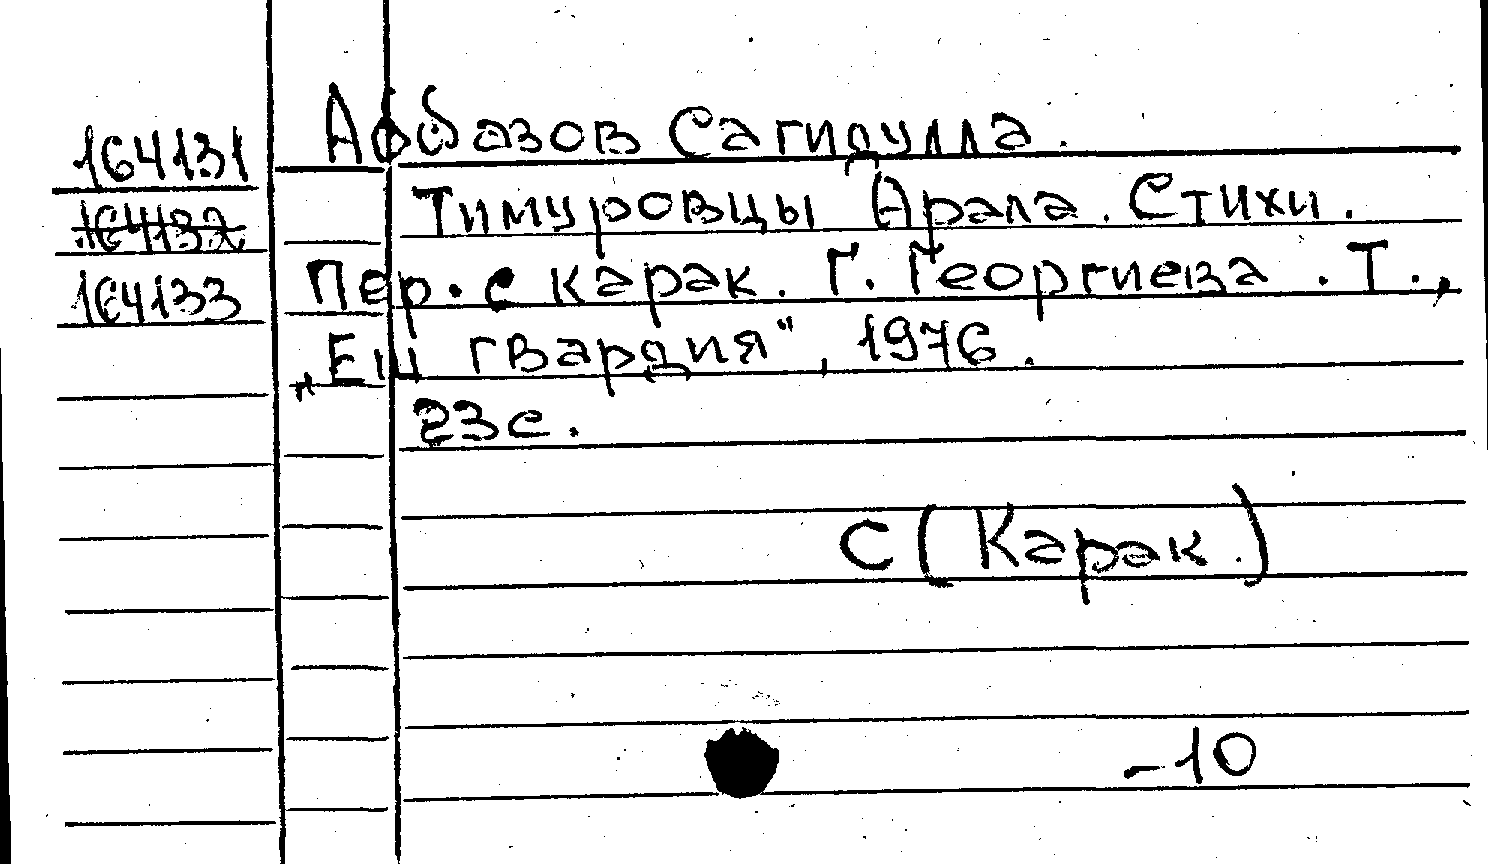 164131 Аббазов Сагидулла.
164132 Тимуровцы Арала. Стихи.
164133 Пер. с карак. Г. Георгиева. Т.,
„Еш гвардия", 1976.
23 с.
С (Карак.)
-10